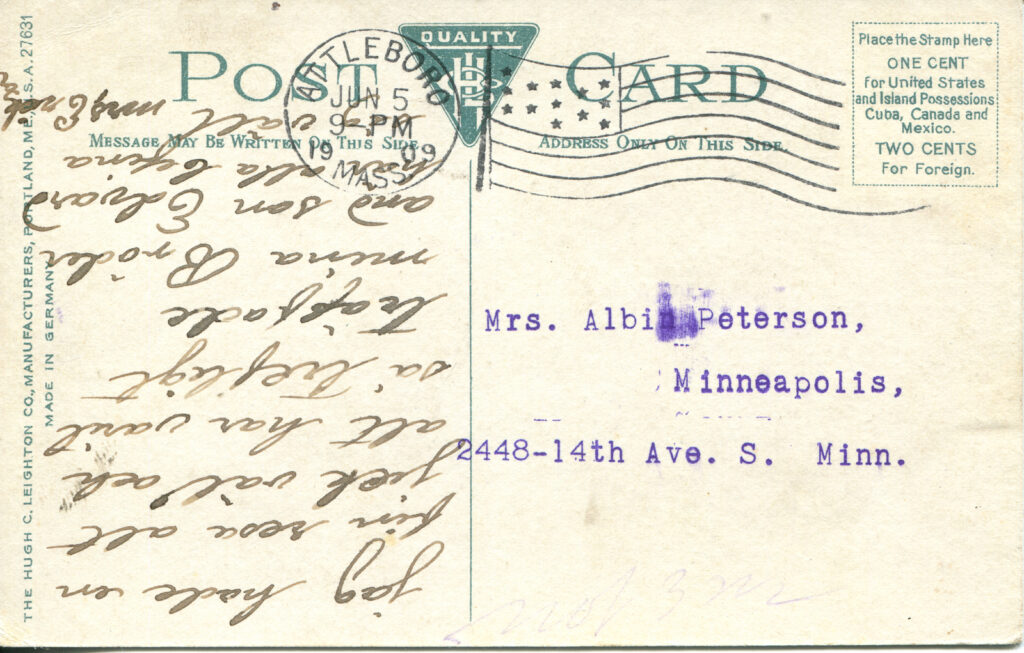 THE HUGH C. LEIGHTON CO., MANUFACTURERS, PORTLAND, ME., U.S.A. 27631
MADE IN GERMANY
POST CARD
QUALITY
ATTLEBORO
JUN 5
9-PM
1909
MASS.
MESSAGE MAY BE WRITTEN ON THIS SIDE
ADDRESS ONLY ON THIS SIDE
Place the Stamp Here
ONE CENT
for United States
and Island Possessions
Cuba, Canada and
Mexico.
TWO CENTS
For Foreign.
Mrs. Albin Peterson,
Minneapolis,
2448-14th Ave. S. Minn.
jag hade en
fin resa alt
jeck väl och
alt har varit
så trefligt
träffade
mina Bröder
and son Edvard
alla
mrs